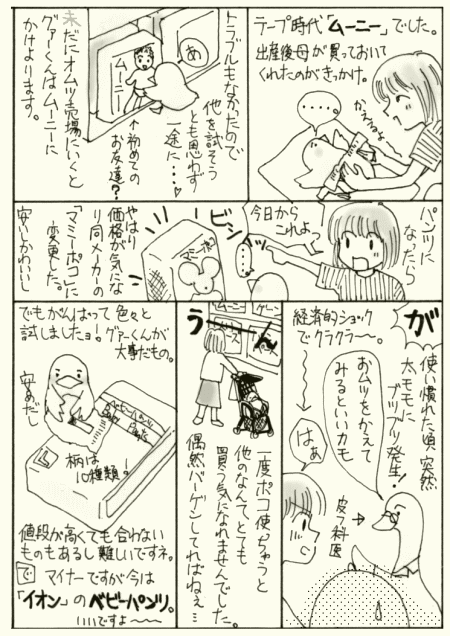 テープ時代「ムーニー」でした。
出産後母が買っておいて
くれたのがきっかけ。
かえるよ
……
トラブルもなかったので
他を試そう
とも思わず
一途に…
あ
ムーニー
↑初めての
お友達？
未だにオムツ売場にいくと
グァーくんはムーニーに
かけよります。
パンツに
なったら
今日から
これよっ
ビシッ
……
マミーポコ
やはり
価格が気にな
り同メーカーの
「マミーポコ」に
変更した。
安いしかわいいし
が
使い慣れた頃、突然
太モモに
ブツブツ発生！
おムツをかえて
みるといいカモ
皮フ科医
経済的ショック
でクラクラ〜。
はぁ
う
ムーニー
一度ポコ使っちゃうと
他のなんてとても
買う気になれませんでした。
偶然バーゲンしてればねぇ…
でもがんばって色々と
試しましたョ！グァーくんが
大事だもの。
ベビーパンツ
Baby Pants
L
柄は
10種類！
値段が高くても合わない
ものもあるし難しいですネ。
で マイナーですが今は
「イオン」のベビーパンツ。
ですよ〜〜